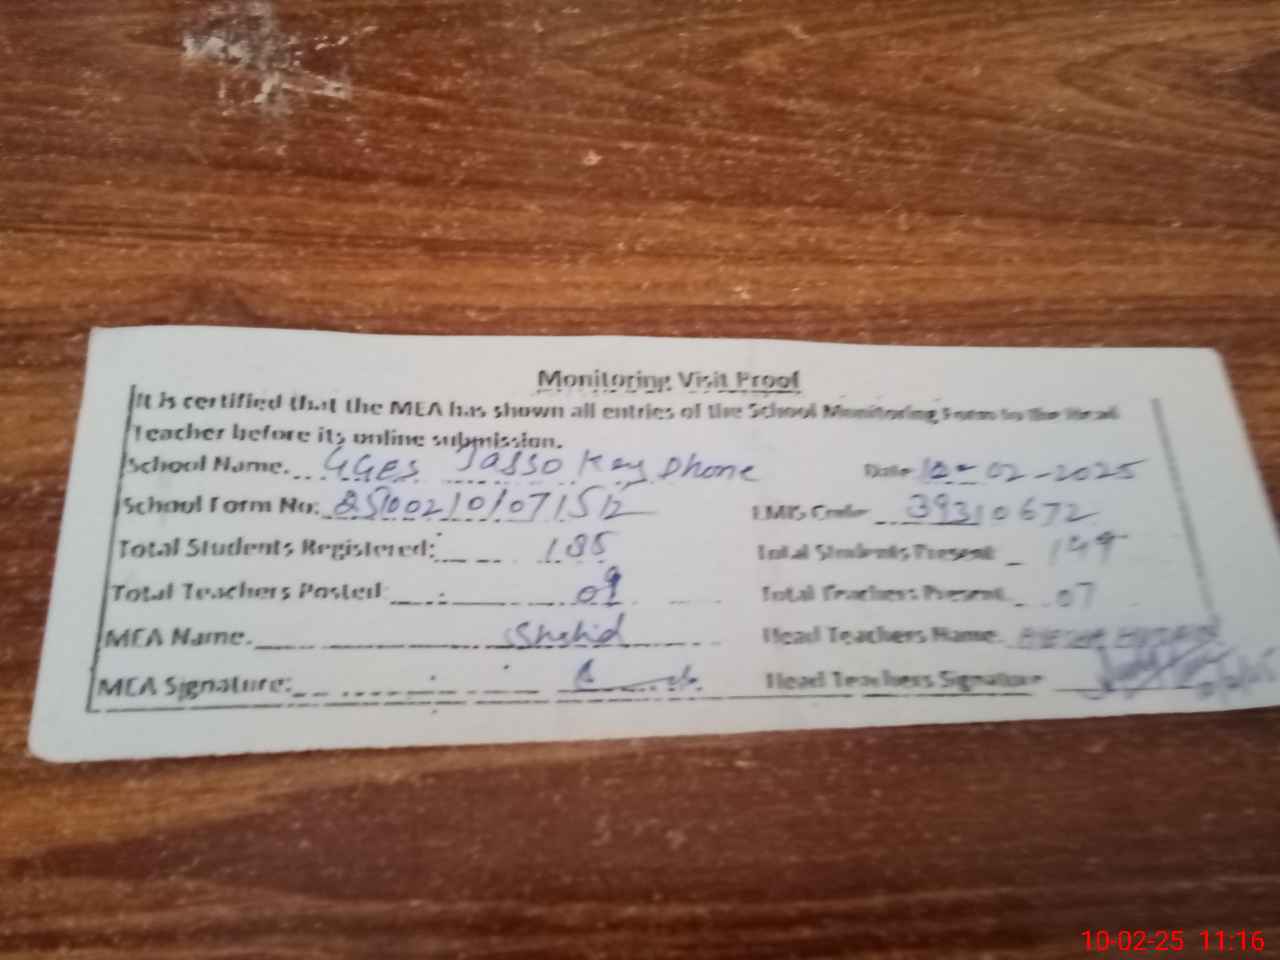 Monitoring Visit Proof
It is certified that the MEA has shown all entries of the School Monitoring Form to the Head
Teacher before its online submission.
School Name. GGES Jasso Key Dhone Date 10-02-2025
School Form No: EMIS Code 39310672
Total Students Registered: 185 Total Students Present
Total Teachers Posted: 09 Total Teachers Present. 07
MEA Name. Shahid Head Teachers Name.
MEA Signature: Head Teachers Signature
10-02-25 11:16